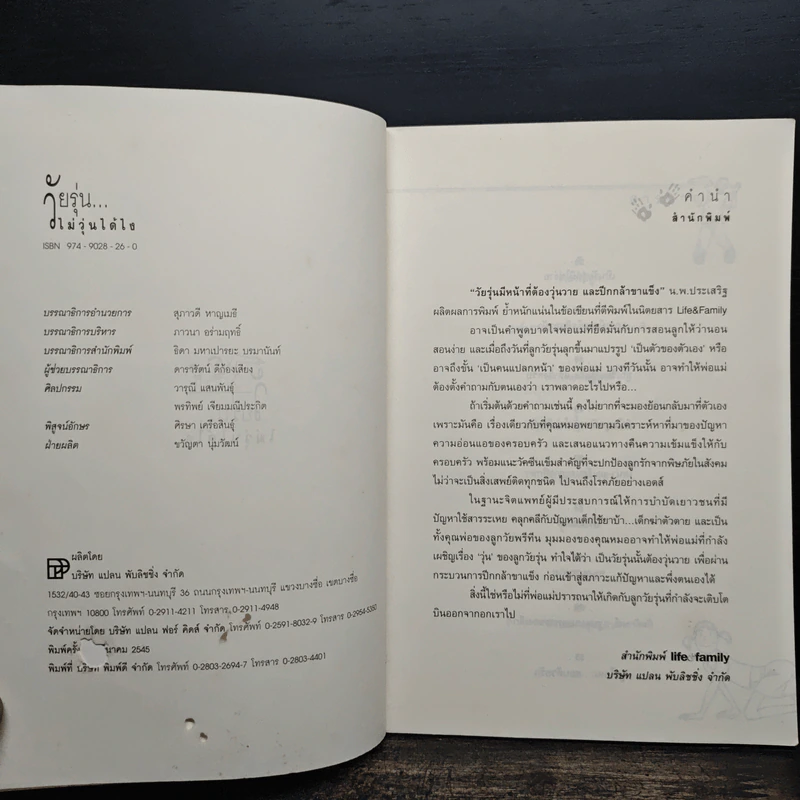 วัยรุ่น...
ไม่วุ่นได้ไง
ISBN 974 - 9028 - 26 - 0
บรรณาธิการอำนวยการ สุภาวดี หาญเมธี
บรรณาธิการบริหาร ภาวนา อร่ามฤทธิ์
บรรณาธิการสำนักพิมพ์ ธิดา มหาเปารยะ บรมานันท์
ผู้ช่วยบรรณาธิการ ดารารัตน์ ตีก้องเสียง
ศิลปกรรม วารุณี แสนพันธุ์
พรทิพย์ เจียมมณีประกิต
พิสูจน์อักษร ศิรษา เครือสินธุ์
ฝ่ายผลิต ขวัญตา นุ่มวัฒน์
ผลิตโดย
บริษัท แปลน พับลิชชิ่ง จำกัด
1532/40-43 ซอยกรุงเทพฯ-นนทบุรี 36 ถนนกรุงเทพฯ-นนทบุรี แขวงบางซื่อ เขตบางซื่อ
กรุงเทพฯ 10800 โทรศัพท์ 0-2911-4211 โทรสาร 0-2911-4948
จัดจำหน่ายโดย บริษัท แปลน ฟอร์ คิดส์ จำกัด โทรศัพท์ 0-2591-8032-9 โทรสาร 0-2954-5350
พิมพ์ครั้ง 2545
พิมพ์ที่ บริษัท พิมพ์ดี จำกัด โทรศัพท์ 0-2803-2694-7 โทรสาร 0-2803-4401
คำนำ
สำนักพิมพ์
“วัยรุ่นมีหน้าที่ต้องวุ่นวาย และปีกกล้าขาแข็ง” น.พ.ประเสริฐ
ผลิตผลการพิมพ์ ย้ำหนักแน่นในข้อเขียนที่ตีพิมพ์ในนิตยสาร Life&Family
อาจเป็นคำพูดบาดใจพ่อแม่ที่ยึดมั่นกับการสอนลูกให้ว่านอน
สอนง่าย และเมื่อถึงวันที่ลูกวัยรุ่นลุกขึ้นมาแปรรูป ‘เป็นตัวของตัวเอง’ หรือ
อาจถึงขั้น ‘เป็นคนแปลกหน้า’ ของพ่อแม่ บางทีวันนั้น อาจทำให้พ่อแม่
ต้องตั้งคำถามกับตนเองว่า เราพลาดอะไรไปหรือ...
ถ้าเริ่มต้นด้วยคำถามเช่นนี้ คงไม่ยากที่จะมองย้อนกลับมาที่ตัวเอง
เพราะมันคือ เรื่องเดียวกับที่คุณหมอพยายามวิเคราะห์หาที่มาของปัญหา
ความอ่อนแอของครอบครัว และเสนอแนวทางคืนความเข้มแข็งให้กับ
ครอบครัว พร้อมแนะวัคซีนเข็มสำคัญที่จะปกป้องลูกรักจากพิษภัยในสังคม
ไม่ว่าจะเป็นสิ่งเสพย์ติดทุกชนิด ไปจนถึงโรคภัยอย่างเอดส์
ในฐานะจิตแพทย์ผู้มีประสบการณ์ให้การบำบัดเยาวชนที่มี
ปัญหาใช้สารระเหย คลุกคลีกับปัญหาเด็กใช้ยาบ้า...เด็กฆ่าตัวตาย และเป็น
ทั้งคุณพ่อของลูกวัยพรีทีน มุมมองของคุณหมออาจทำให้พ่อแม่ที่กำลัง
เผชิญเรื่อง ‘วุ่น’ ของลูกวัยรุ่น ทำใจได้ว่า เป็นวัยรุ่นนั้นต้องวุ่นวาย เพื่อผ่าน
กระบวนการปีกกล้าขาแข็ง ก่อนเข้าสู่สภาวะแก้ปัญหาและพึ่งตนเองได้
สิ่งนี้ใช่หรือไม่ที่พ่อแม่ปรารถนาให้เกิดกับลูกวัยรุ่นที่กำลังจะเติบโต
บินออกจากอกเราไป
สำนักพิมพ์ life & family
บริษัท แปลน พับลิชชิ่ง จำกัด